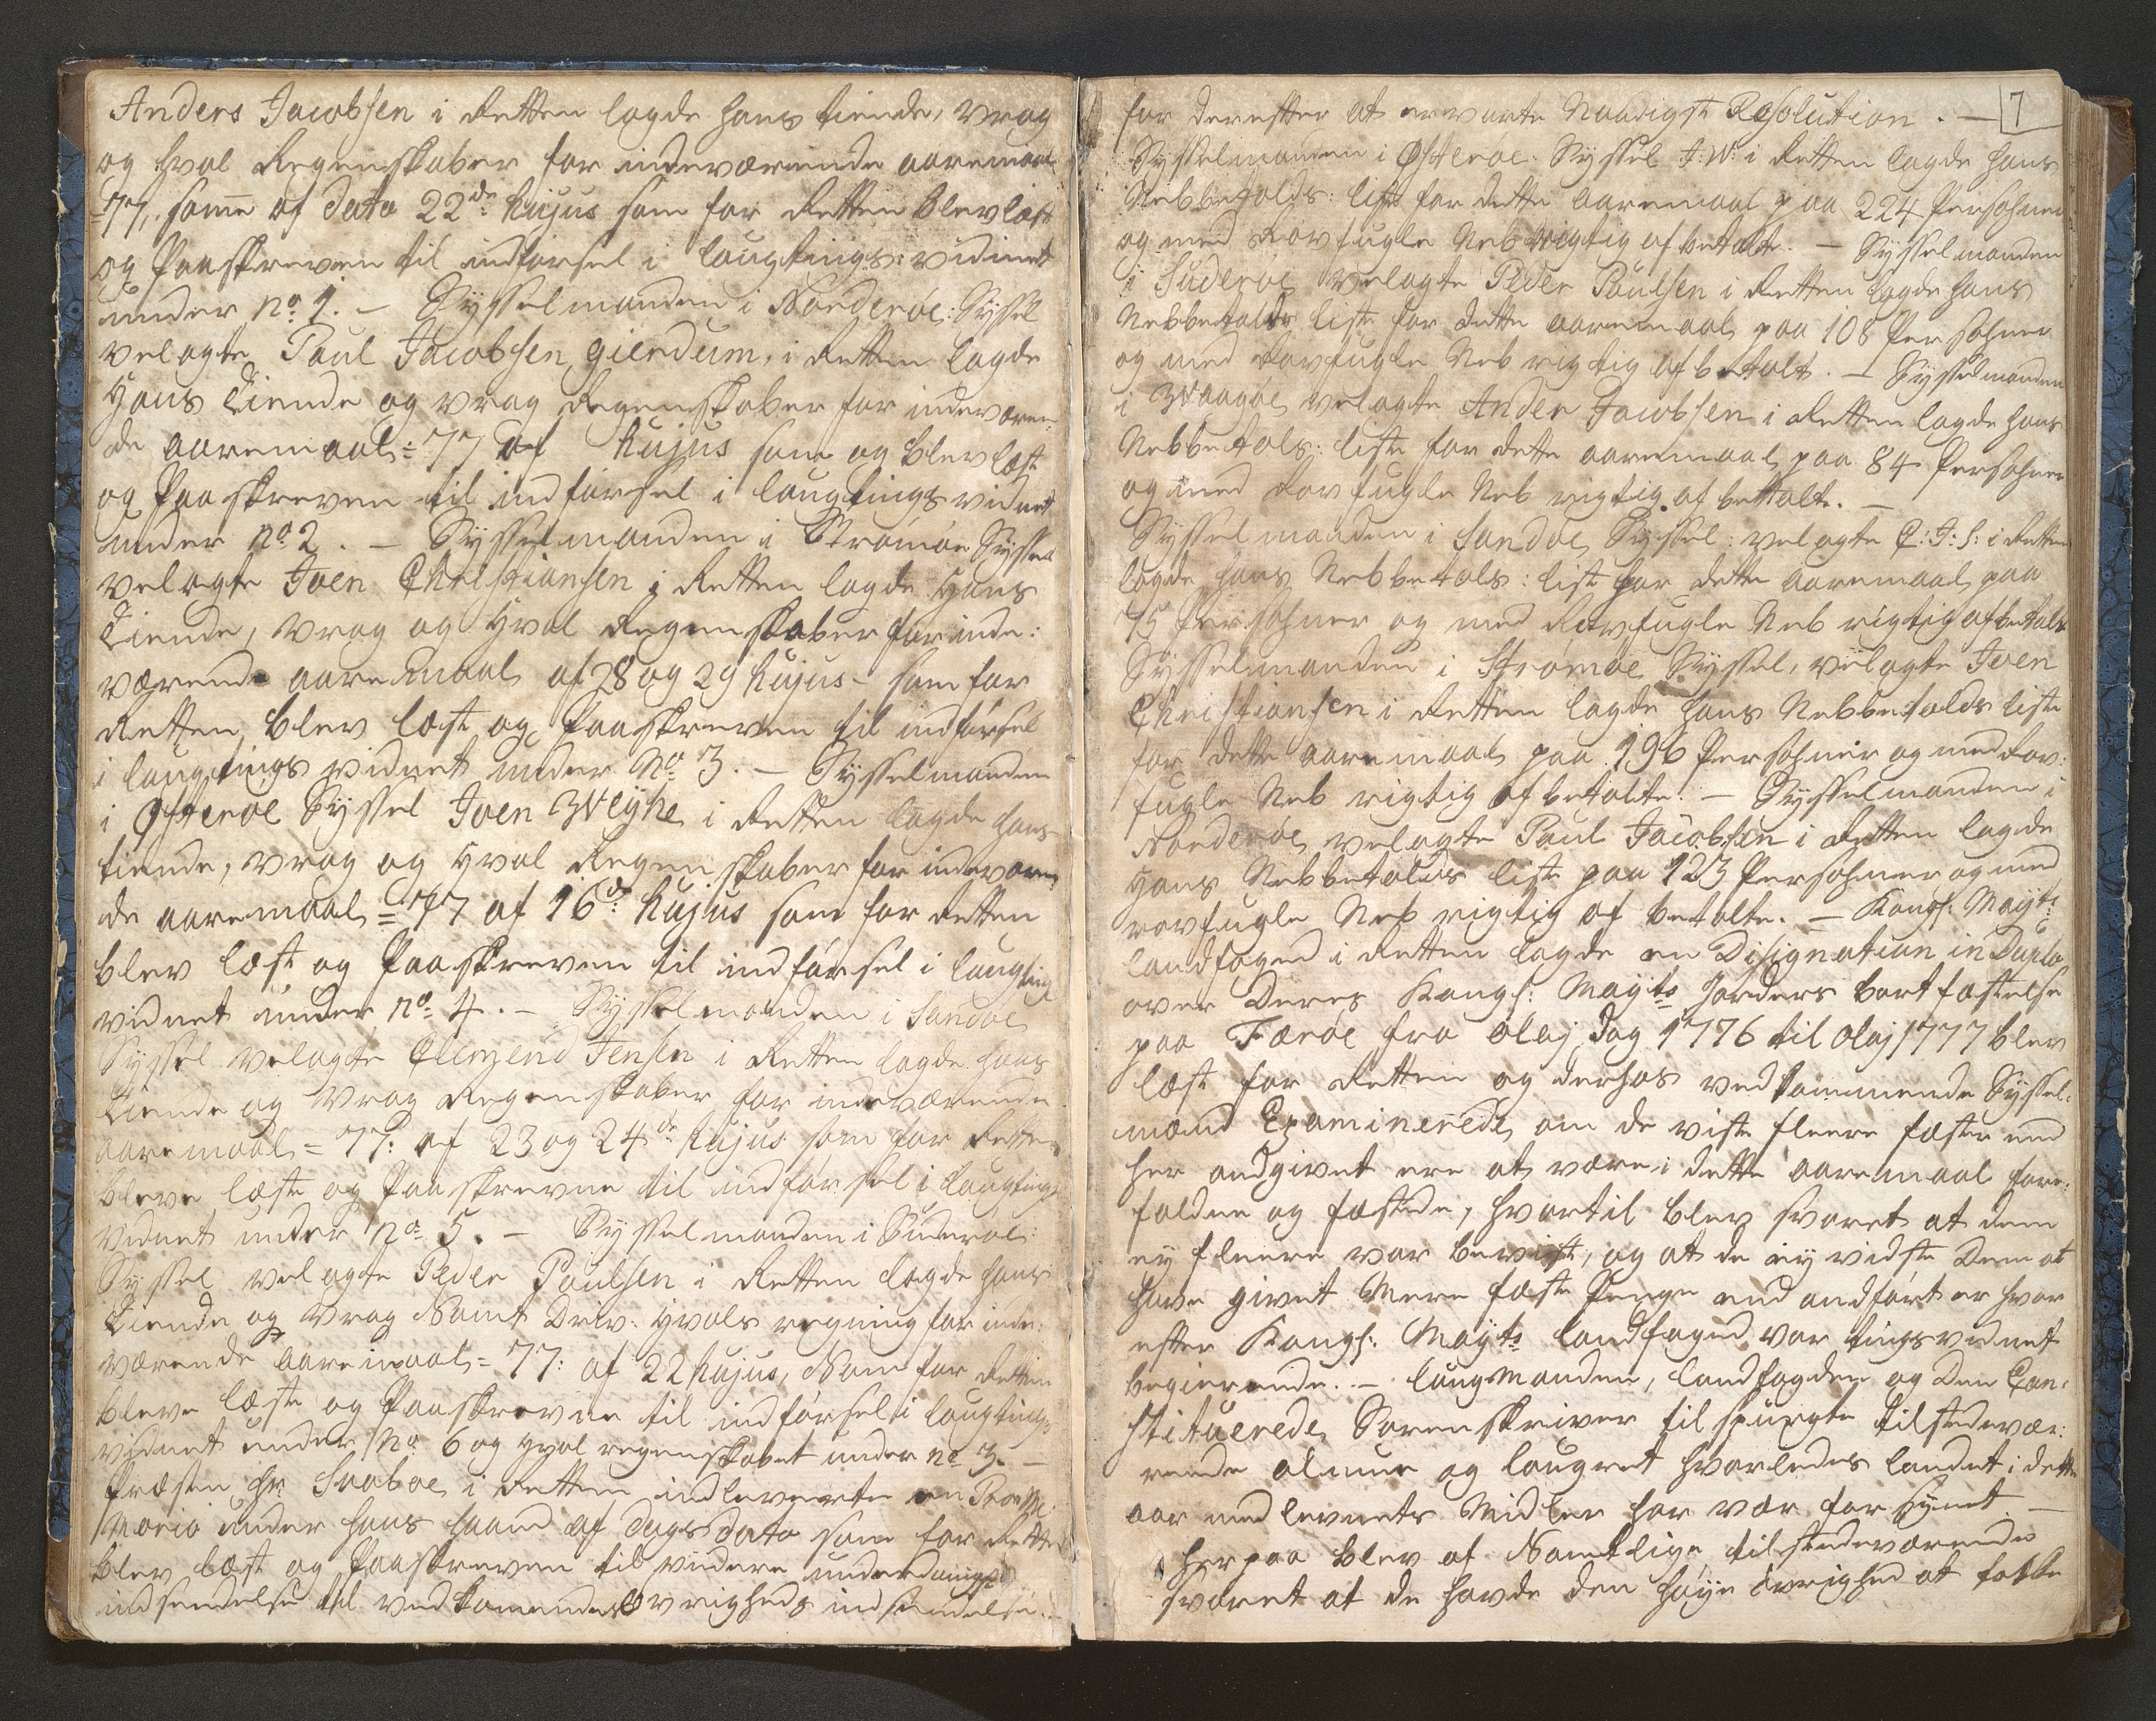 Anders Jacobsen i Retten lagde hans tiende, vrag
og hval Regenskaber for indeværende aaremaal
77, som̄e af dato 22de hujus som for Retten blev læst
og Paaskreven til indførsel i laugtings vidnet
under No. 1. – Sysselmanden i Norderøe: Syssel
velagte Paul Jacobsen Gierdum, i Retten lagde
Hans Tiende og vrag Regenskaber for indeværen-
de aaremaal = 77 af hujus som og blev læst
og Paaskreven til indførsel i laugtings vidnet
under No. 2. – Sysselmanden i Strømøe Syssel
velagte Joen Christiansen i Retten lagde Hans
Tiende, vrag og Hval Regenskaber for inde:
værende aaremaal af 28 og 29 hujus – som for
Retten blev læst og Paaskreven til indførsel
i laugtings vidnet under No. 3. – Sysselmanden
i Østerøe Syssel Joen Weyhe i Retten lagde hans
tiende, vrag og Hval Regenskaber for indeværen-
de aaremaal = 77 af 16de hujus som for Retten
blev læst og Paaskreven til indførsel i laugting
vidnet under No. 4. – Sysselmanden i Sandøe
Syssel velagte Clemend Jensen i Retten lagde hans
Tiende og vrag Regenskaber for indeværende
aaremaal = 77: af 23 og 24de hujus som for Retten
bleve læste og Paaskrevne til indførsel i laugtings
vidnet under No. 5. – Sysselmanden i Suderøe:
Syssel velagte Peder Poulsen i Retten lagde hans
Tiende og vrag Samt Driv: Hvals regning for inde:
værende aaremaal = 77: af 22 hujus, Som for Retten
bleve læste og Paaskrevne til indførsel i laugtings
vidnet under No. 6 og Hval regenskabet under No. 3. –
Præsten Hr. Svaboe i Retten indleverte en Prome-
moria under hans haand af Dags dato som for Retten
blev læst og Paaskreven til videre underdanigst
indsendelse til vedkommende Øvrigheds indsendelse. –
for derefter at ervarte Naadigst Resolution. – 7
Sysselmanden i Østerøe: Syssel J: W: i Retten lagde hans
Nebbetolds: liste for dette aaremaal paa 224 Persohner
og med Rovfugle Neb rigtig afbetalte. – Sysselmanden
i Suderøe velagte Peder Poulsen i Retten lagde hans
Nebbetolds liste for dette aaremaal paa 108 Persohner
og med Rovfugle Neb rigtig afbetalt. – Sysselmanden
i Waagøe velagte Ander Jacobsen i Retten lagde hans
Nebbetols: liste for dette aaremaal paa 84 Persohner
og med Rovfugle Neb rigtig afbettalte. –
Sysselmanden i Sandøe Syssel: velagte C: J: S: i Retten
lagde hans Nebbetols: list for dette aaremaal paa
75 Persohner og med Rovfugle Neb rigtig afbetalt
Sysselmanden i Strømøe Syssel, velagte Joen
Christiansen i Retten lagde hans Nebbetolds liste
for dette aaremaal paa 196 Persohner og med Rov:
fugle Neb rigtig afbetalte. – Sysselmanden i
Norderøe velagte Paul Jacobsen i Retten lagde
Hans Nebbetolds liste paa 123 Persohner og med
rovfugle Neb rigtig afbetalte. – Kongl: Mayts
landfoged i Retten lagde en Disignation in Duplo
over Deres Kongl: Mayts Jorders bortfæstelse
paa Færøe fra Olaj Dag 1776 til Olaj 1777 blev
læst for Retten og derhos vedkommende Syssel-
mænd Examinerede om de viste fleere fæster end
her andgivet ere at være i dette aaremaal fore:
faldne og fæstede, hvortil blev svaret at dem
ey fleere var bevist, og at de ey vidste Dem at
have givet Mere fæste Penge end andført er hvor
efter Kongl: Mayts landfoged var tingsvidnet
begierende. – laugmanden, landfogden og Den Con-
stituerede Sorenskriver tilspurgte tilstedevæ:
rende almue og laugret hvorledes landet i dette
aar med levnets Midler har vær forsynet. –
herpaa blev af Samtlige tilstedeværende
svaret at de havde den høye øvrighed at takke